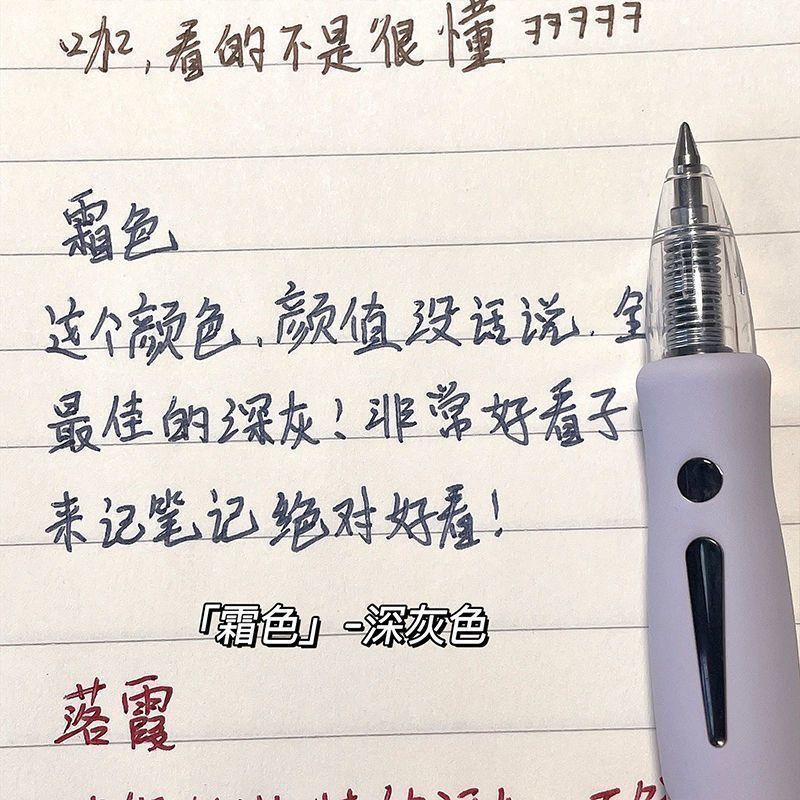 咖，看的不是很懂ㄱㄱㄱㄱㄱ
霜色
这个颜色，颜值没话说.
最佳的深灰！非常好看子
来记笔记绝对好看！
「霜色」-深灰色
落霞